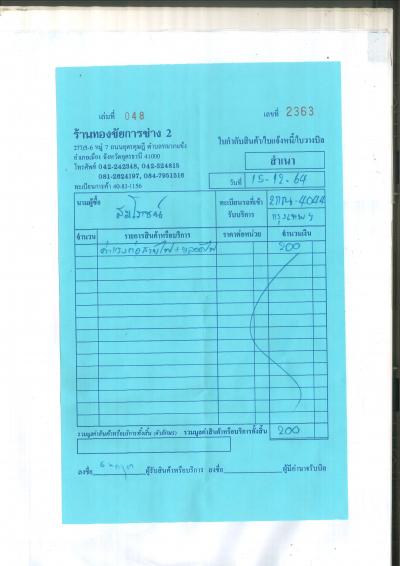 เล่มที่ 048 เลขที่ 2363
ร้านทองชัยการช่าง 2
277/5-6 หมู่ 7 ถนนอุดรดุษฎี ตำบลหมากแข้ง
อำเภอเมือง จังหวัดอุดรธานี 41000
โทรศัพท์ 042-242348, 042-324815
081-2624197, 084-7951516
ทะเบียนการค้า 40-83-1156
ใบกำกับสินค้า/ใบแจ้งหนี้/ใบวางบิล
สำเนา
วันที่ 15-12-64
นามผู้ซื้อ
ทะเบียนรถที่เข้ารับบริการ 4044
กรุงเทพฯ
จำนวน รายการสินค้าหรือบริการ ราคาต่อหน่วย จำนวนเงิน
ค่าแรงต่อสายไฟ+หลอดไฟ 200
รวมมูลค่าสินค้าหรือบริการทั้งสิ้น (ตัวอักษร) รวมมูลค่าสินค้าหรือบริการทั้งสิ้น 200
ลงชื่อ ผู้รับสินค้าหรือบริการ ลงชื่อ ผู้มีอำนาจรับบิล